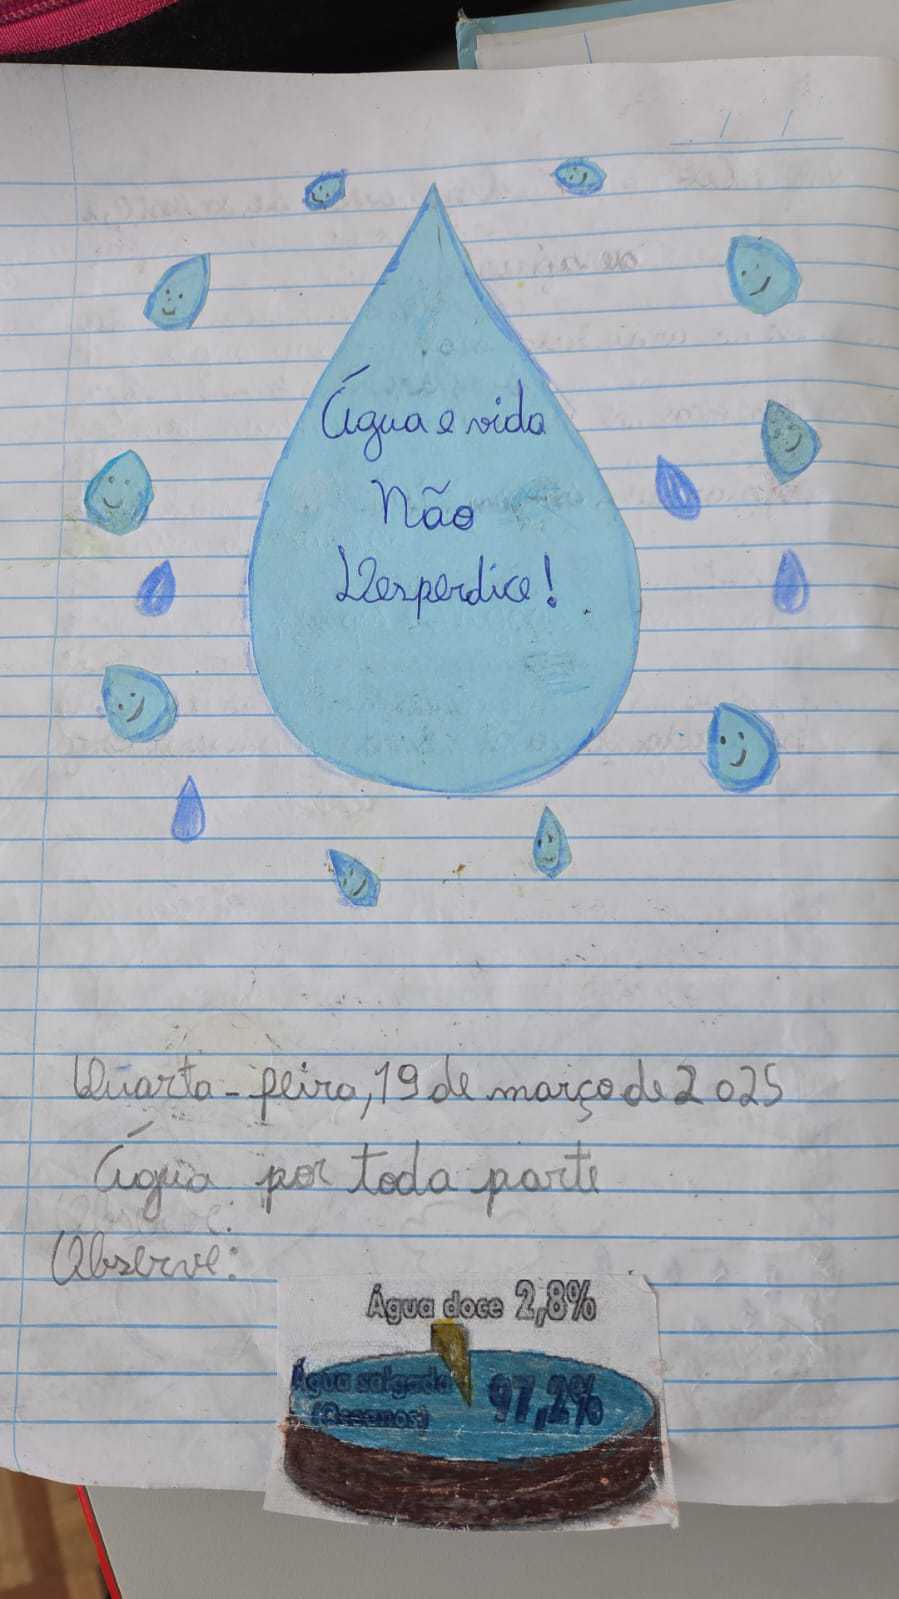 Água e vida
Não
Desperdice!
Quarta-feira, 19 de março de 2025
Água por toda parte
Observe:
Água doce 2,8%
Água salgada 97,2%
(Oceanos)